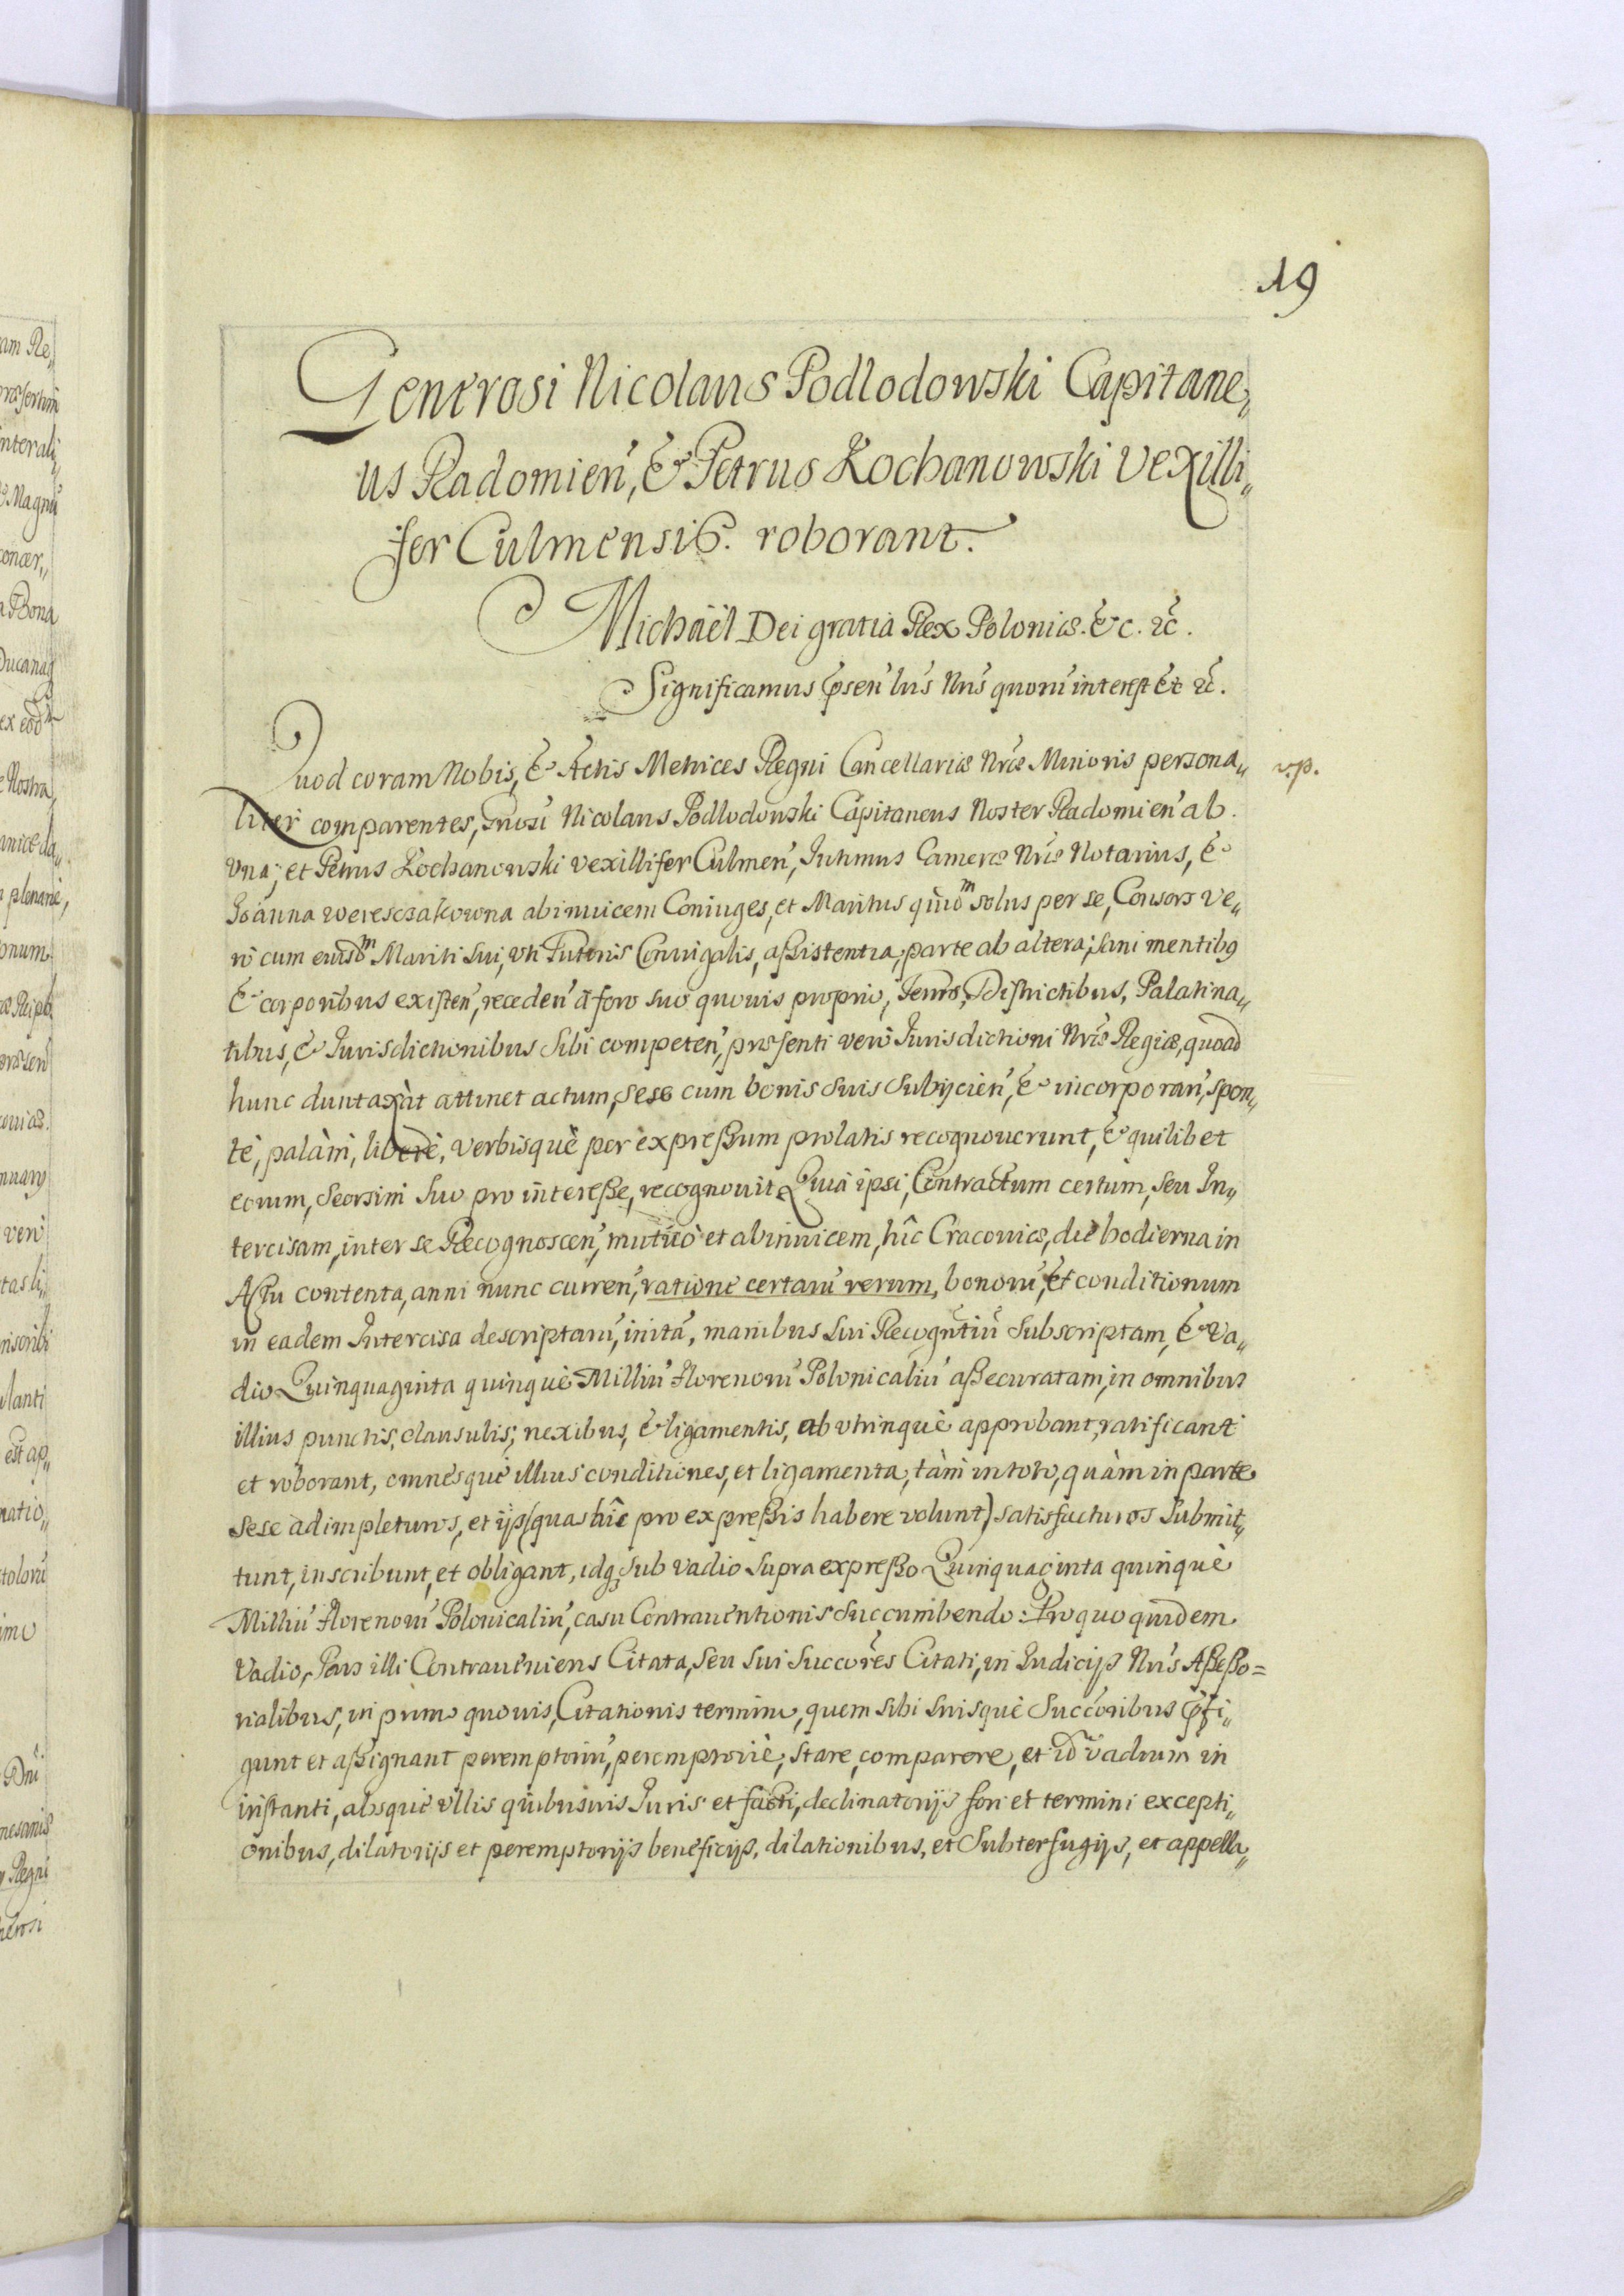 19
Generosi Nicolaus Podlodowski Capitane„
us Radomień, & Petrus Kochanowski Vexilli„
fer Culmensis. roborant.
Michaël Dei gratia Rex Poloniæ. &c. &c.
Significamus p̃sen' lus Nris quorū interest Et &c.
Quod coram Nobis, & Actis Metrices Regni Cancellariæ Nræ Minoris persona„
v.p.
liter comparentes, Gnosi Nicolaus Podlodowski Capitaneus Noster Radomień ab
vna; et Petrus Kochanowski vexillifer Culmeń, Intimus Cameræ Nræ Notarius, &
Joanna wereszczakowna abinuicem Coniuges, et Maritus quidm solus per se, Consors ve„
rò cum eiusdm Mariti sui, vti Tutoris Coniugalis, aßistentia, parte ab altera; sani mentibꝰ
& corporibus existeń, recedeń à foro suo quouis proprio, Terris, Districtibus, Palatina„
tibus, & Jurisdictionibus sibi competeń, præsenti verò Jurisdictioni Nræ Regiæ, quoad
hunc duntaxàt attinet actum, sese cum bonis suis subijcień, & incorporań, spon„
tè, palàm, liberè, verbisquè per èxpreßum prolatis recognouerunt, & quilibet
eorum, seorsim suo pro intereße, recognouit Quia ipsi, Contractum certum, seu In„
tercisam, inter se Recognosceń, mutuò et abinuicem, hîc Cracouiæ, die hodierna in
Actu contenta, anni nunc curreń, ratione certarū rerum, bonorū, et conditionum
in eadem Intercisa descriptarū, initā, manibus sui Recogntiū subscriptam, & Va„
dio Quinquaginta quinquè Milliū florenorū Polonicaliū aßecuratam, in omnibus
illius punctis, clausulis, nexibus, & ligamentis, ab vtrinquè approbant, ratificant
et roborant, omnesquè illius conditiones, et ligamenta, tàm in toto, quàm in parte
sese adimpleturos, et ijs (quas hîc pro expreßis habere volunt) satisfacturos submit„
tunt, inscribunt, et obligant, idq3 sub vadio supra expreßo Quinquaginta quinquè
Milliū florenorū Polonicaliū, casu Contrauentionis succumbendo: Pro quo quidem
Vadio, Pars illi Contraueniens Citata, seu sui succores Citati, in Judicijs Nris Aßeßo=
rialibus, in primo quouis, Citationis termino, quem sibi suisquè succoribus p̃fi„
gunt et aßignant peremptoriū, peremptoriè, stare, comparere, et idm vadium in
instanti, absquè vllis quibusuis Juris et facti, declinatorijs fori et termini excepti„
onibus, dilatorijs et peremptorijs beneficijs, dilationibus, et subterfugijs, et appella„